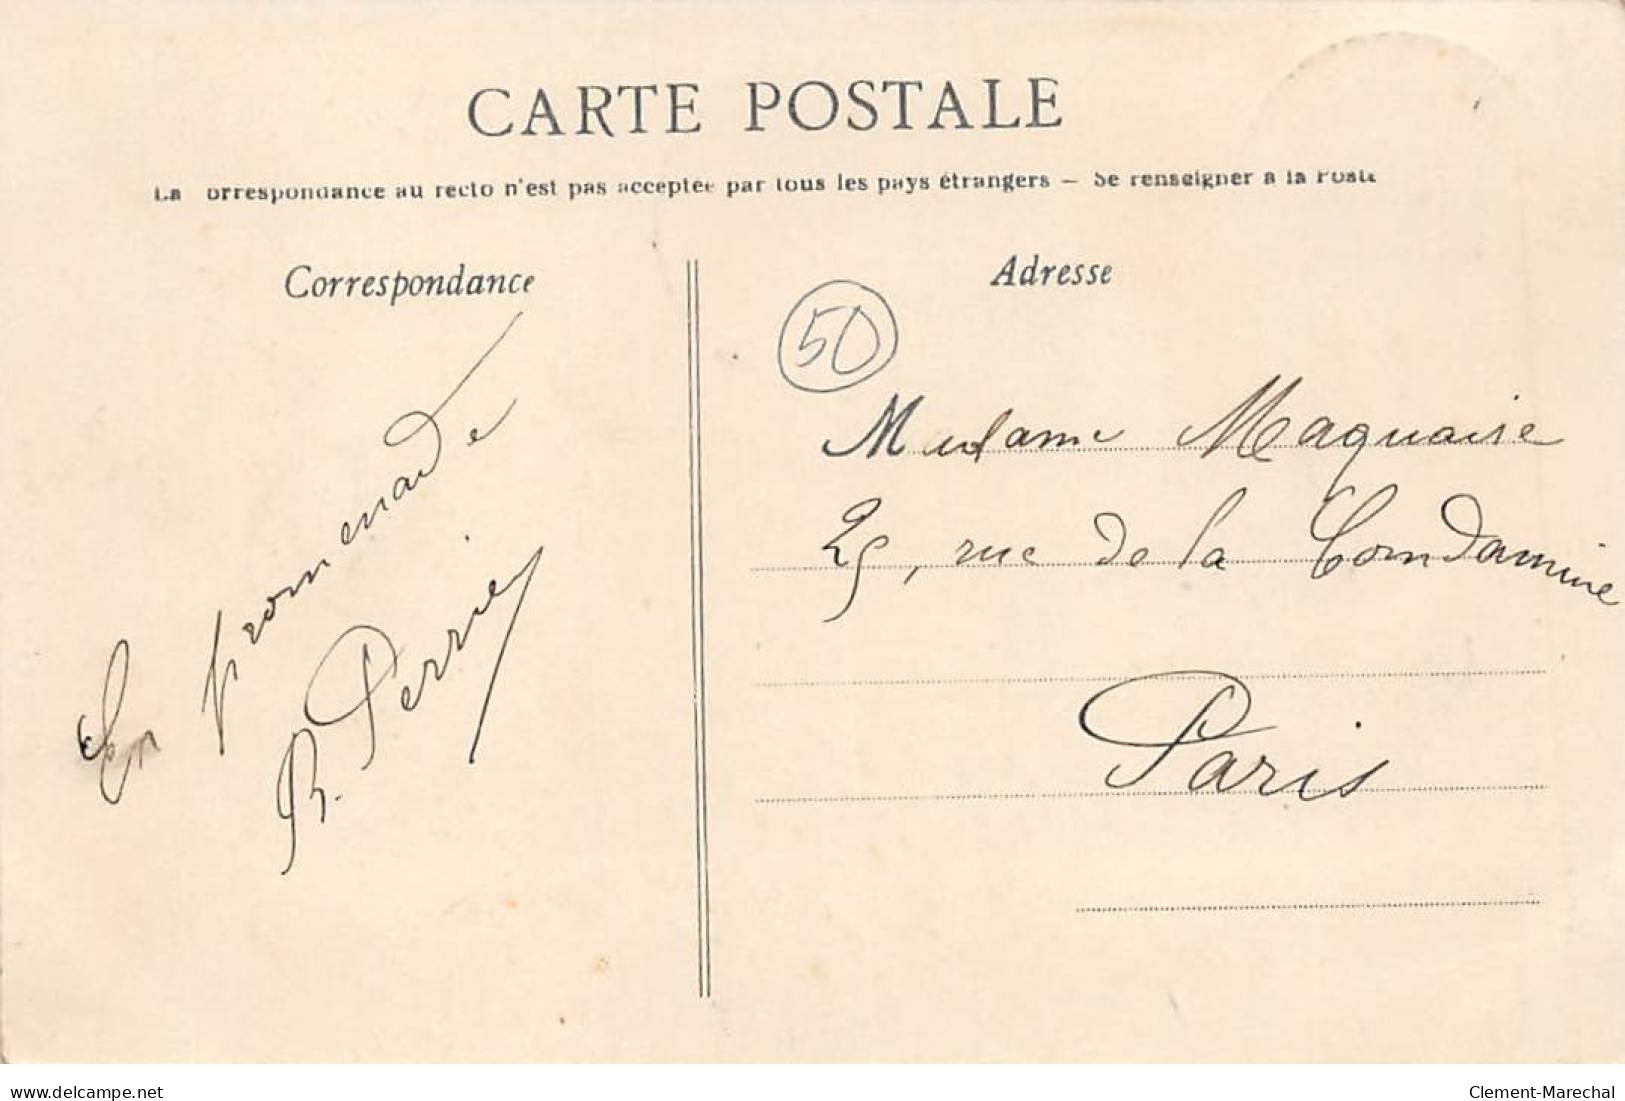 CARTE POSTALE
La orrespondance au recto n'est pas acceptée par tous les pays étrangers — Se renseigner à la Poste
Correspondance
Adresse
50
En promenade
R. Perrier
Madame Maquaire
25, rue de la Condamine
Paris
delcampe.net
Clement-Marechal